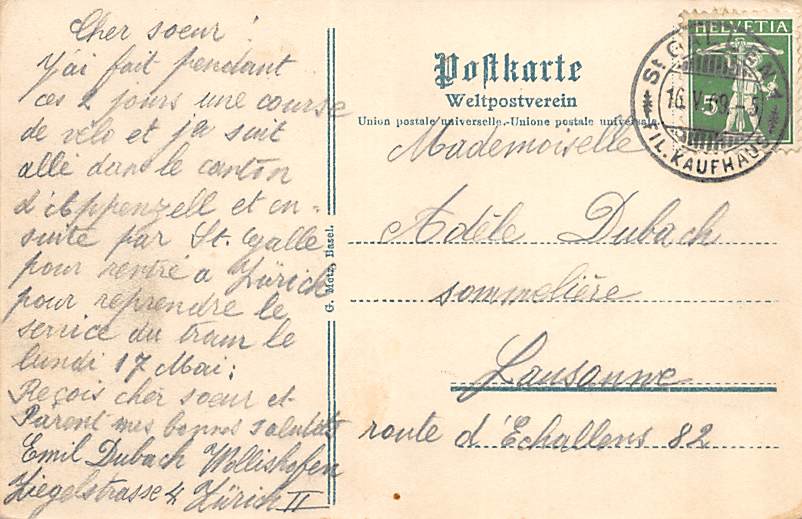 Cher soeur!
J'ai fait pendant
ces 2 jours une course
de vélo et je suit
allé dans le canton
d'Appenzell et en-
suite par St. Galle
pour rentré a Zürich
pour reprendre le
service du tram le
lundi 17 Mai:
Reçois cher soeur et
Parent mes bonnes salutats
Emil Dubach Wollishofen
Ziegelstrasse 4 Zürich II
G. Metz, Basel.
Postkarte
Weltpostverein
Union postale universelle.-Unione postale universale
HELVETIA
5
St. GALLEN 1
16.V.09.-5
FIL. KAUFHAUS
Mademoiselle
Adèle Dubach
sommelière
Lausanne
route d'Echallens 82